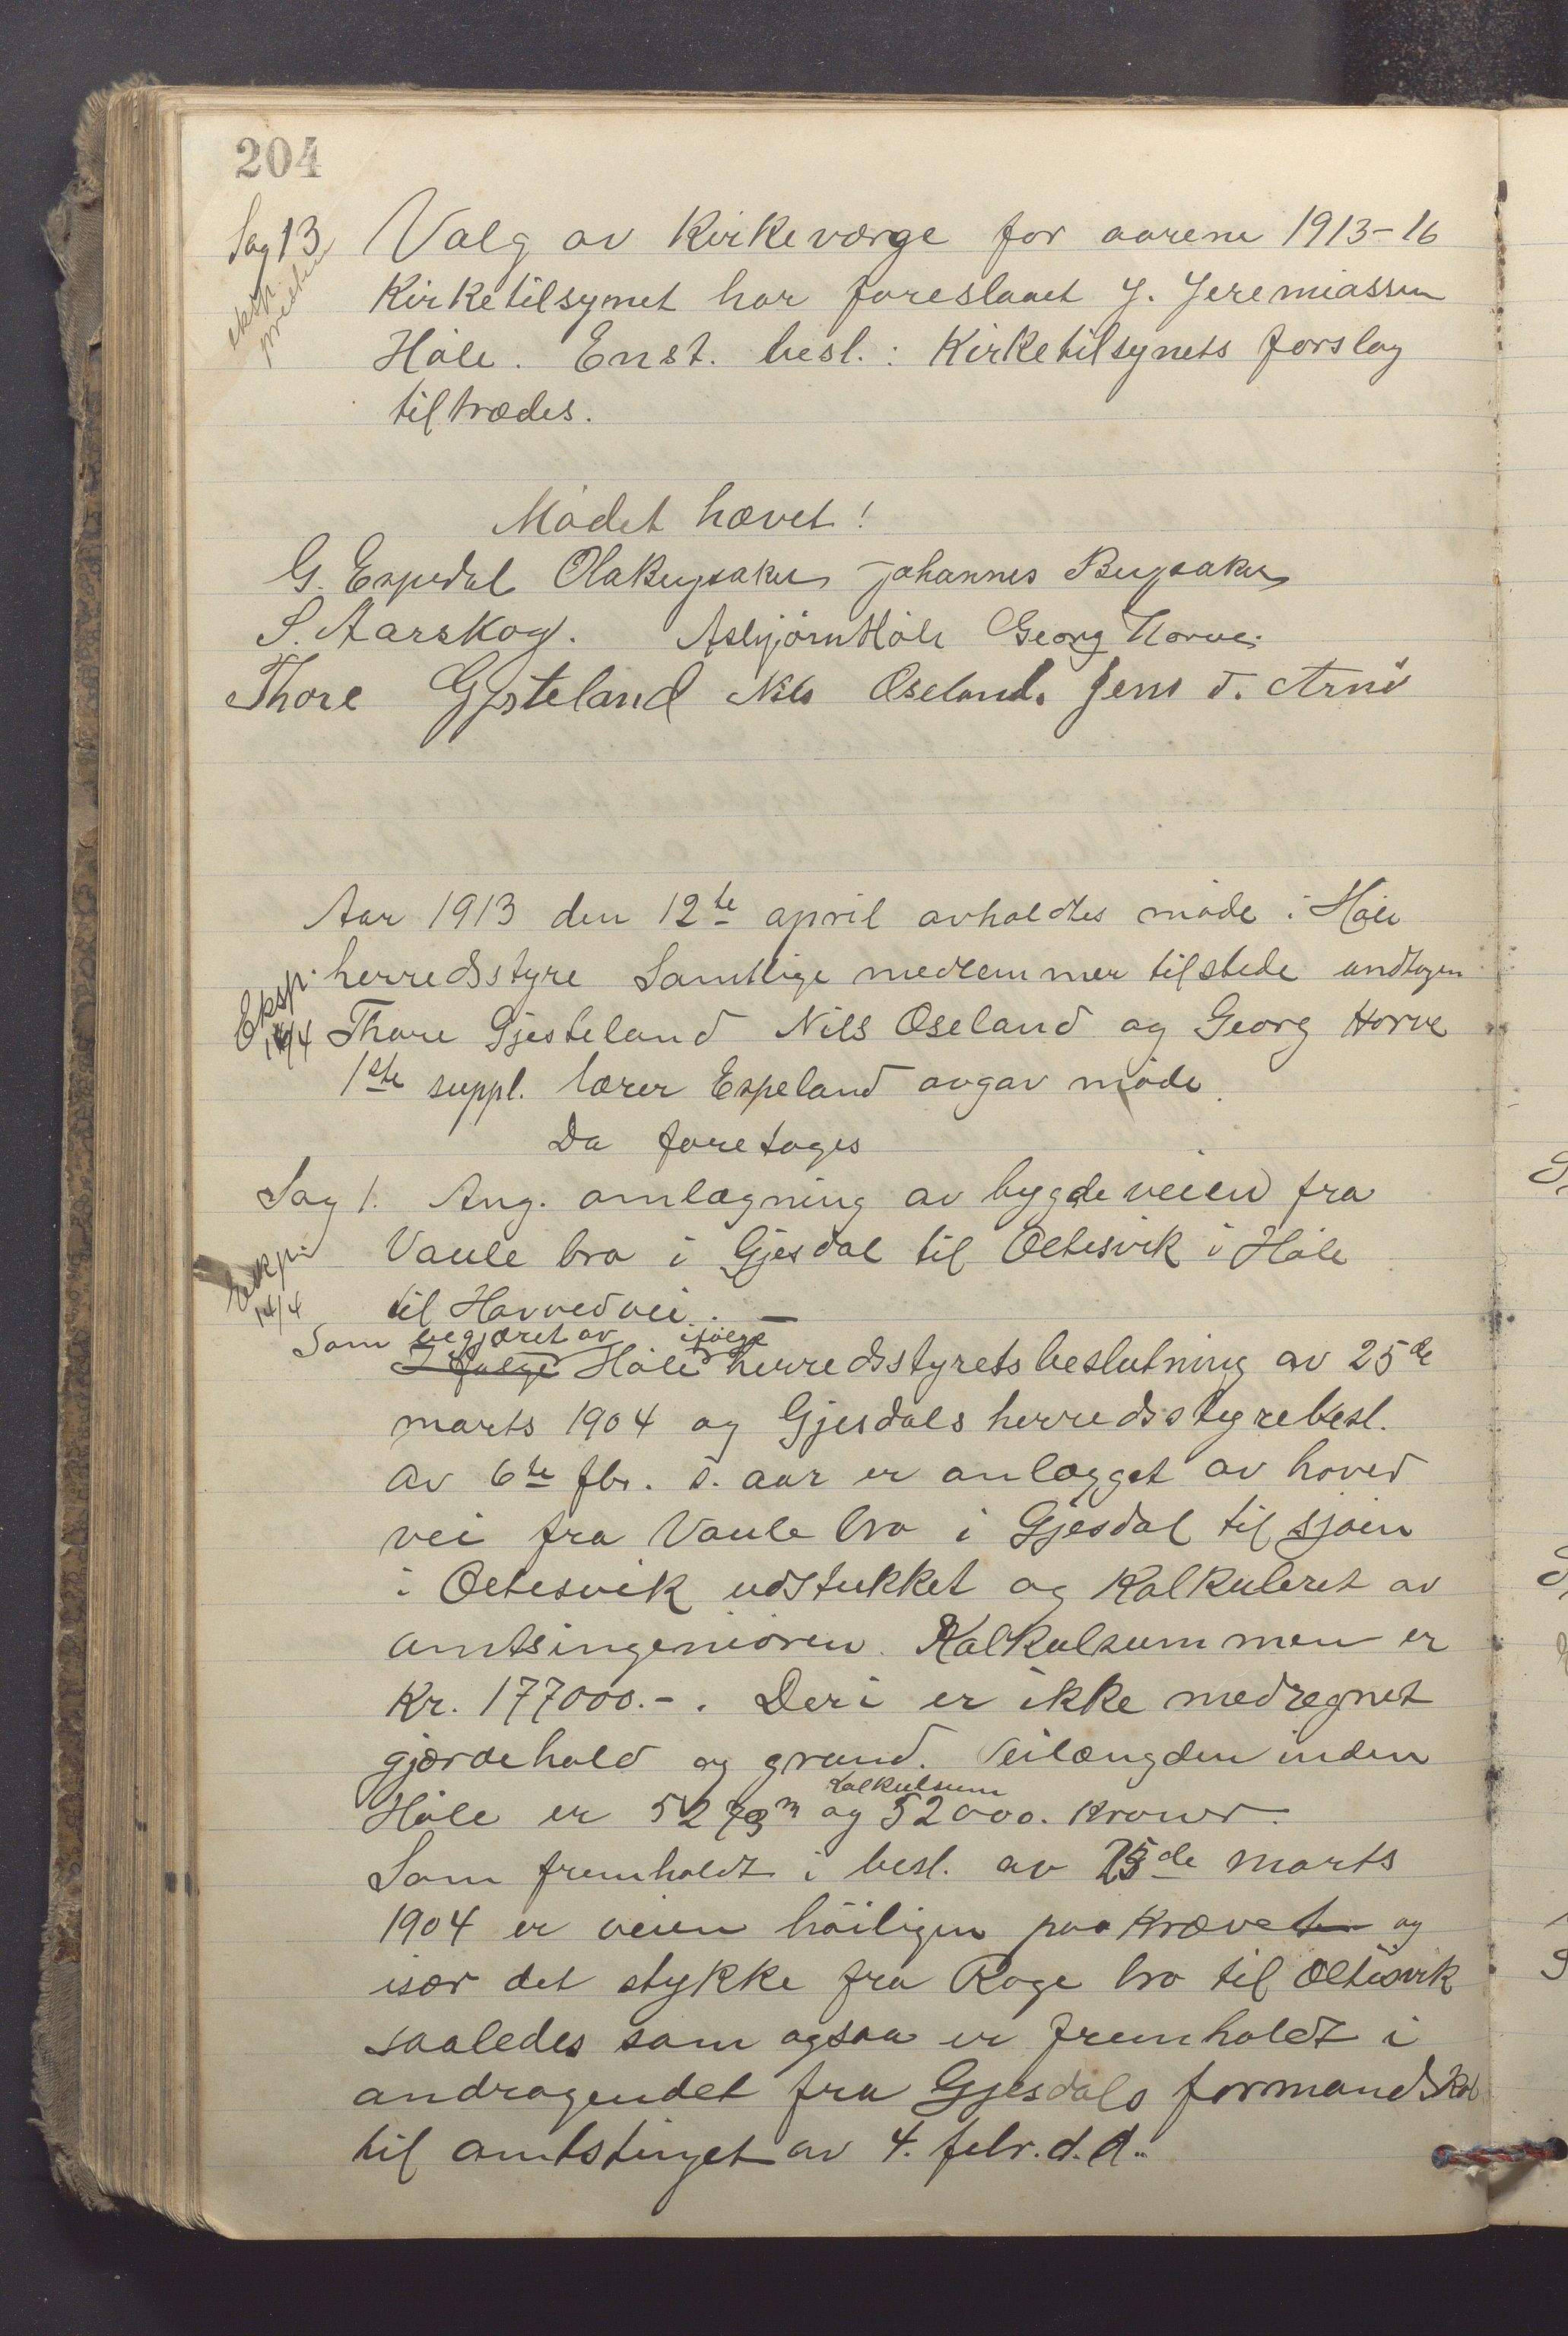 204
Sag 13 Valg av Kirkeværge for aarene 1913-16
eksp. presten
Kirketilsynet har foreslaaet J. Jeremiassen
Høle. Enst. besl.: Kirketilsynets forslag
tiltrædes.
Mødet hævet!
G. Espedal Ola Bugsaker Johannes Bugsaker
S. Aarskog. Asbjørn Høle Georg Horve.
Thore Gjesteland Nils Oseland. Jens T. Arnø
Aar 1913 den 12te april avholdtes møde i Høle
Eksp. herredsstyre Samtlige medlemmer tilstede undtagen
14/4 Thore Gjesteland Nils Oseland og Georg Horve
1ste suppl. lærer Espeland avgav møde.
Da foretoges
Sag 1. Ang. omlægning av bygdeveien fra
Eksp. Vaule bro i Gjesdal til Oltesvik i Høle
14/4 til Hovedvei. —
Som begjæret av ifølge
I følge Høle herredsstyrets beslutning av 25de
marts 1904 og Gjesdals herredsstyrebesl.
av 6te fbr. s. aar er anlægget av hoved
vei fra Vaule bro i Gjesdal til sjøen
i Oltesvik udstukket og Kalkuleret av
amtsingeniøren. Kalkulsummen er
Kr. 177000.-. Deri er ikke medregnet
gjærdehold og grund. Veilængden inden
Kalkulsum
Høle er 5273 m og 52000. Kroner.
Som fremholdt i besl. av 25de marts
1904 er veien høiligen paakrævet og
især det stykke fra Rage bro til Oltesvik
saaledes som ogsaa er fremholdt i
andragendet fra Gjesdals formandskab
til amtstinget av 4. febr. d.a..